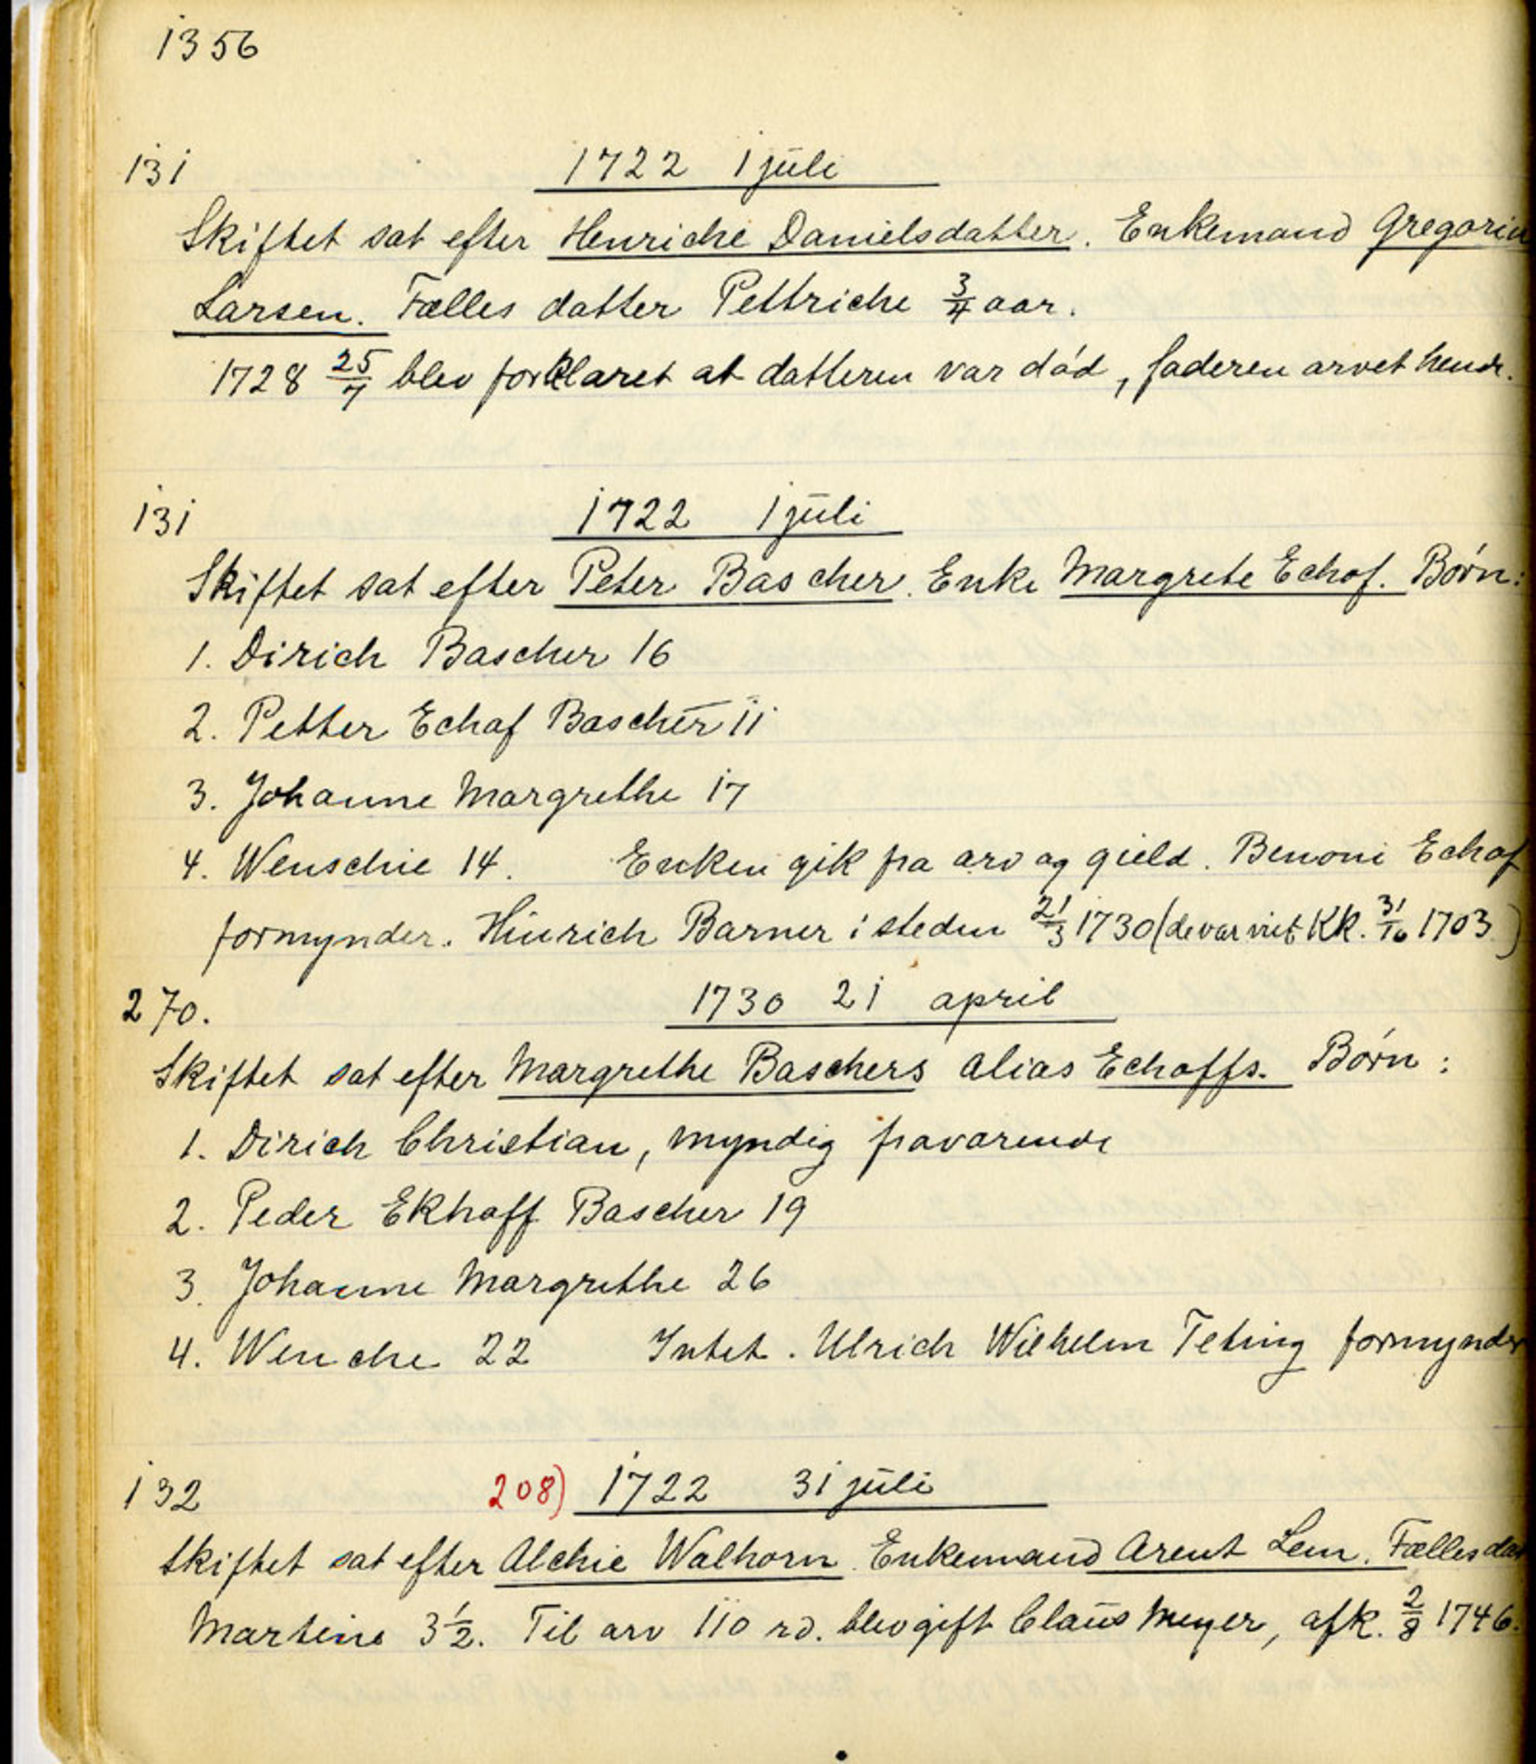 1356
131 1722 1 juli
Skiftet sat efter Henriche Danielsdatter. Enkemand Gregorius
Larsen. Fælles datter Pettriche 3/4 aar.
1728 25/7 blev forklaret at datteren var død, faderen arvet hende.
131 1722 1 juli
Skiftet sat efter Peter Bascher. Enke Margrete Echof. Børn:
1. Dirich Bascher 16
2. Petter Echof Bascher 11
3. Johanne Margrethe 17
4. Wenschie 14. Enken gik fra arv og gield. Benoni Echof
formynder. Hinrich Barner i steden 21/3 1730 (de var viet Kk. 31/10 1703)
270. 1730 21 april
Skiftet sat efter Margrethe Baschers alias Echoffs. Børn:
1. Dirich Christian, myndig fraværende
2. Peder Ekhoff Bascher 19
3. Johanne Margrethe 26
4. Wenche 22 Intet. Ulrich Wilhelm Teting formynder
132 208) 1722 31 juli
Skiftet sat efter Alchie Walhorn. Enkemand Arent Lem. Fælles dat
Martine 3 1/2. Til arv 110 rd. blev gift Claus Meyer, afk. 2/8 1746.